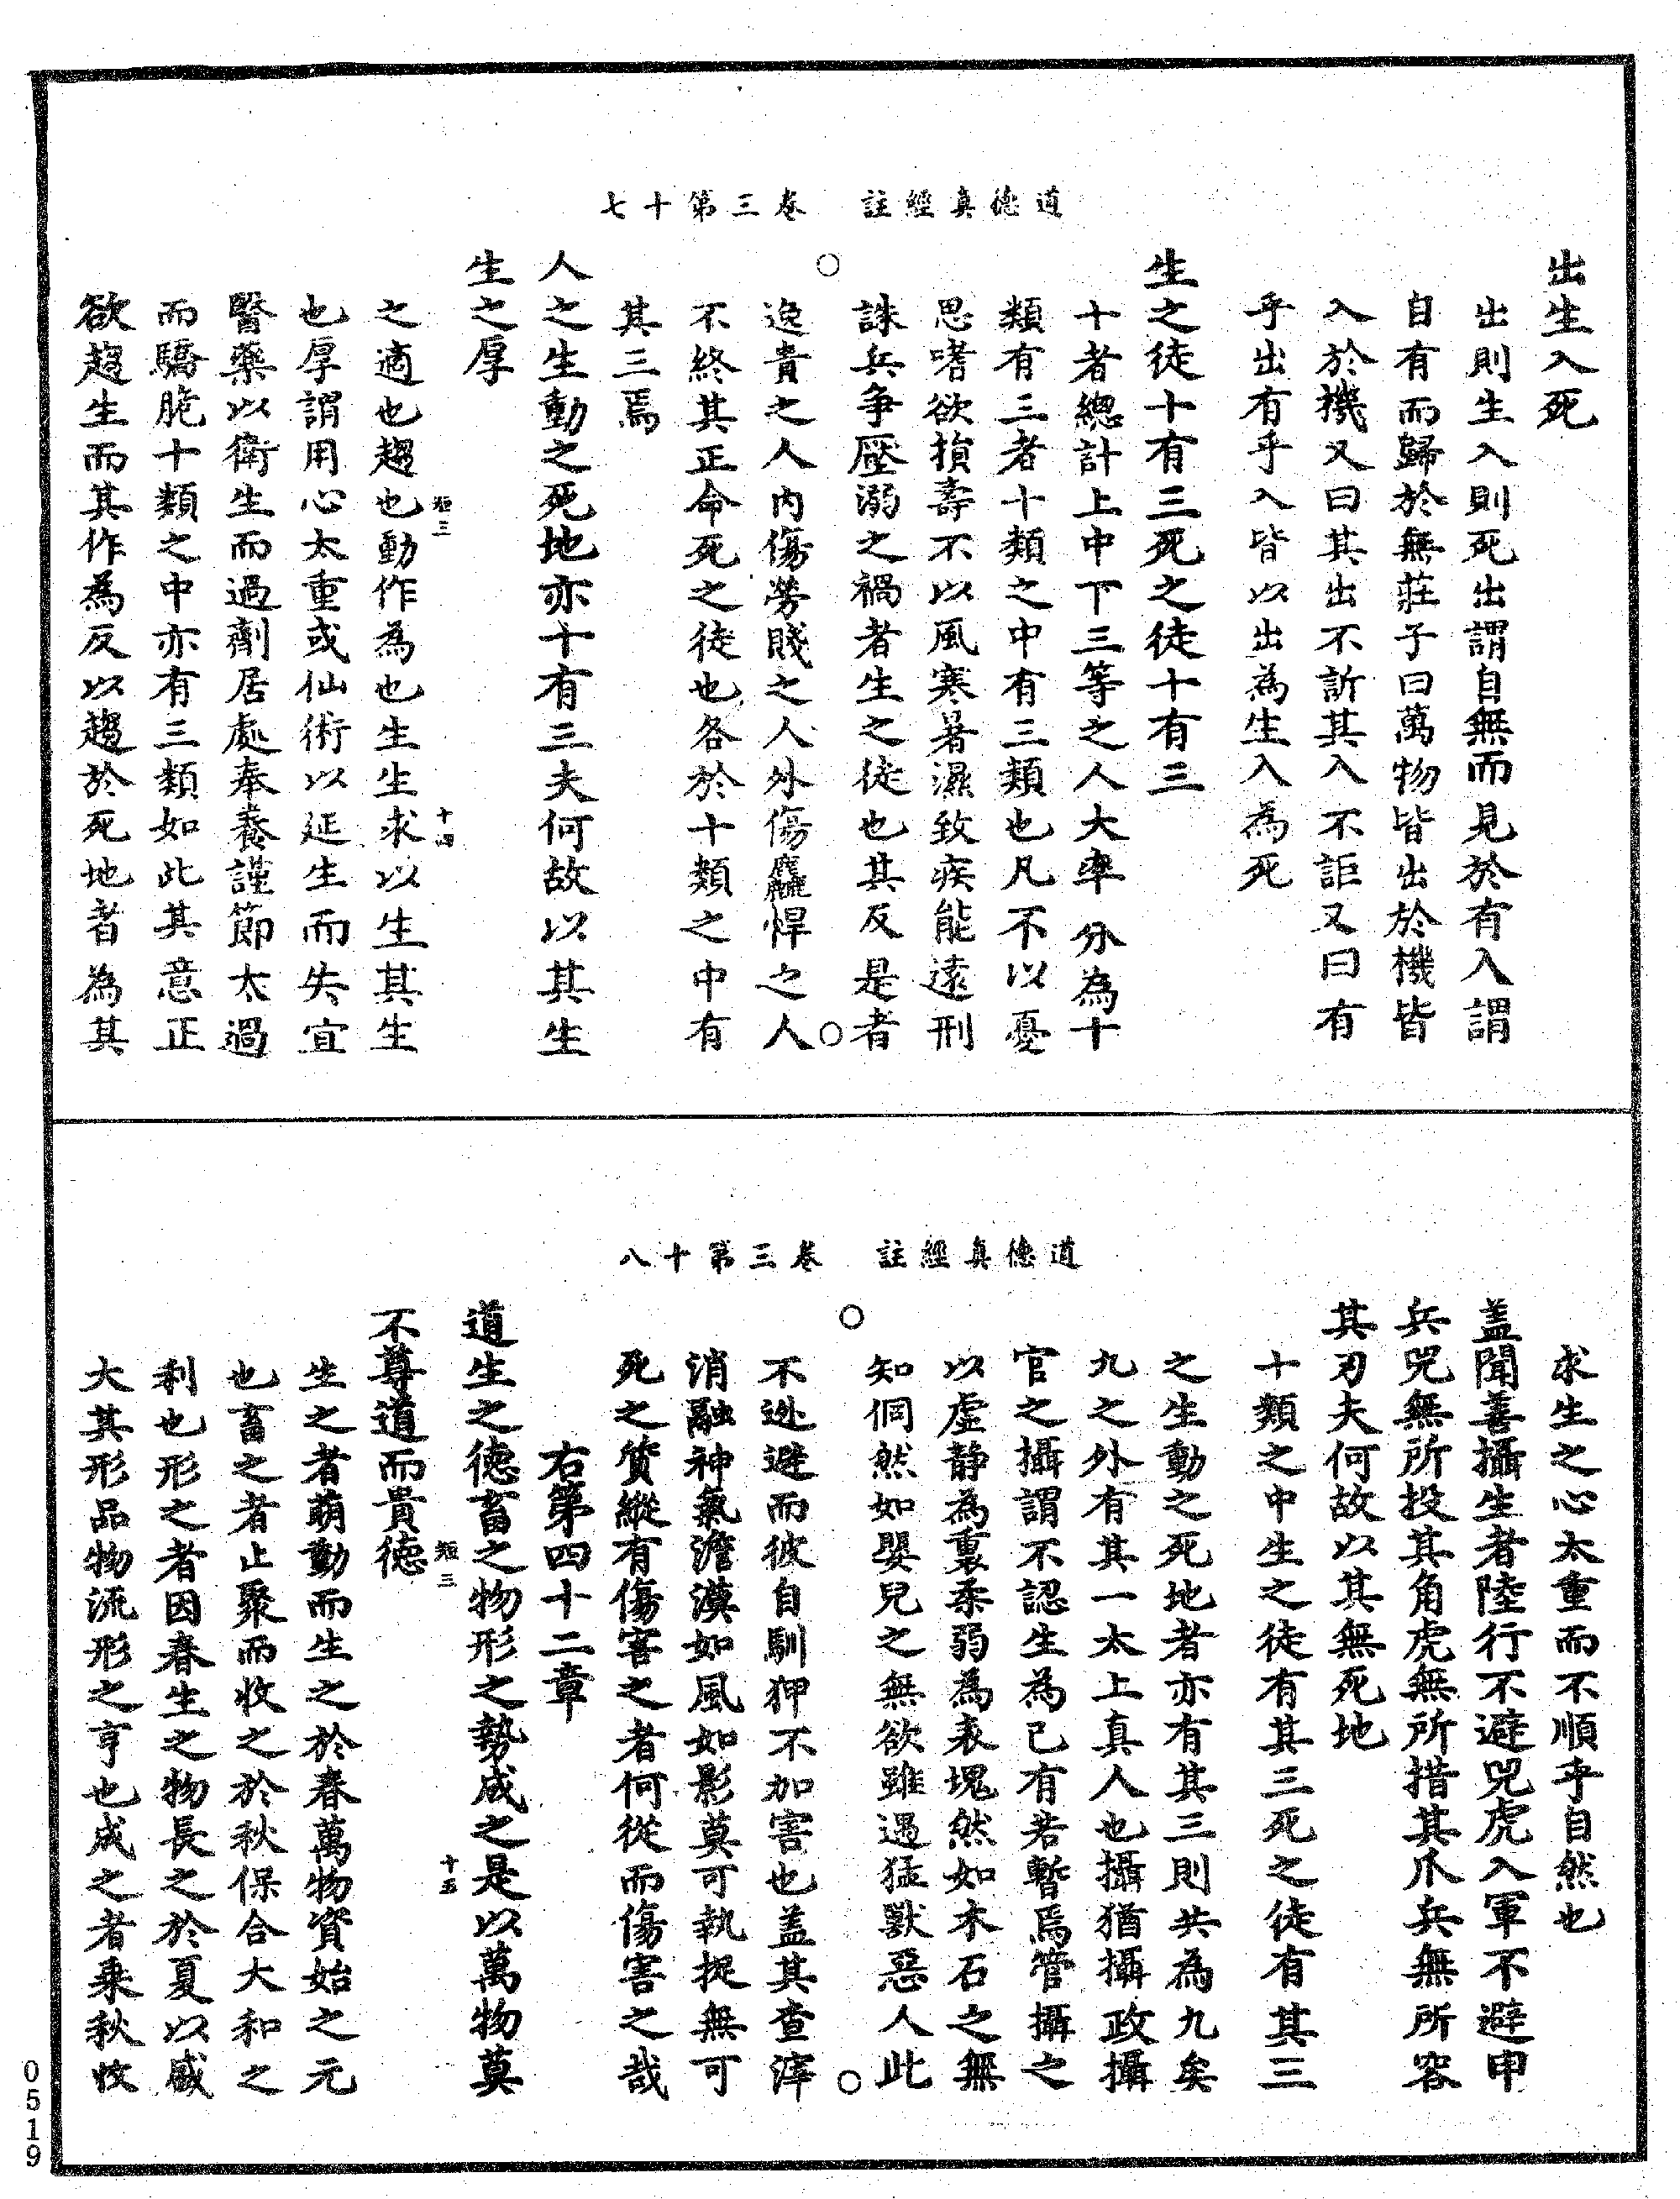 道德真經註　卷三第十七
出生入死
出則生入則死出謂自無而見於有入謂
自有而歸於無莊子曰萬物皆出於機皆
入於機又曰其出不訢其入不詎又曰有
乎出有乎入皆以出為生入為死
生之徒十有三死之徒十有三
十者總計上中下三等之人大率分為十
類有三者十類之中有三類也凡不以憂
思嗜欲損壽不以風寒暑濕致疾能遠刑
誅兵爭壓溺之禍者生之徒也其反是者
○　○
逸貴之人內傷勞賤之人外傷麤悍之人
不終其正命死之徒也各於十類之中有
其三焉
人之生動之死地亦十有三夫何故以其生
生之厚
短三　十四
之適也趨也動作為也生生求以生其生
也厚謂用心太重或仙術以延生而失宜
醫藥以衛生而過劑居處奉養謹節太過
而驕脆十類之中亦有三類如此其意正
欲趨生而其作為反以趨於死地者為其
道德真經註　卷三第十八
求生之心太重而不順乎自然也
盖聞善攝生者陸行不避兕虎入軍不避甲
兵兕無所投其角虎無所措其爪兵無所容
其刃夫何故以其無死地
十類之中生之徒有其三死之徒有其三
之生動之死地者亦有其三則共為九矣
九之外有其一太上真人也攝猶攝政攝
官之攝謂不認生為己有若暫焉管攝之
以虛靜為裏柔弱為表塊然如木石之無
知侗然如嬰兒之無欲雖遇猛獸惡人此
○　○
不迯避而彼自馴狎不加害也盖其查滓
消融神氣澹漠如風如影莫可執捉無可
死之質縱有傷害之者何從而傷害之哉
右第四十二章
道生之德畜之物形之勢成之是以萬物莫
短三　十五
不尊道而貴德
生之者萌動而生之於春萬物資始之元
也畜之者止聚而收之於秋保合大和之
利也形之者因春生之物長之於夏以盛
大其形品物流形之亨也成之者乘秋收
0519